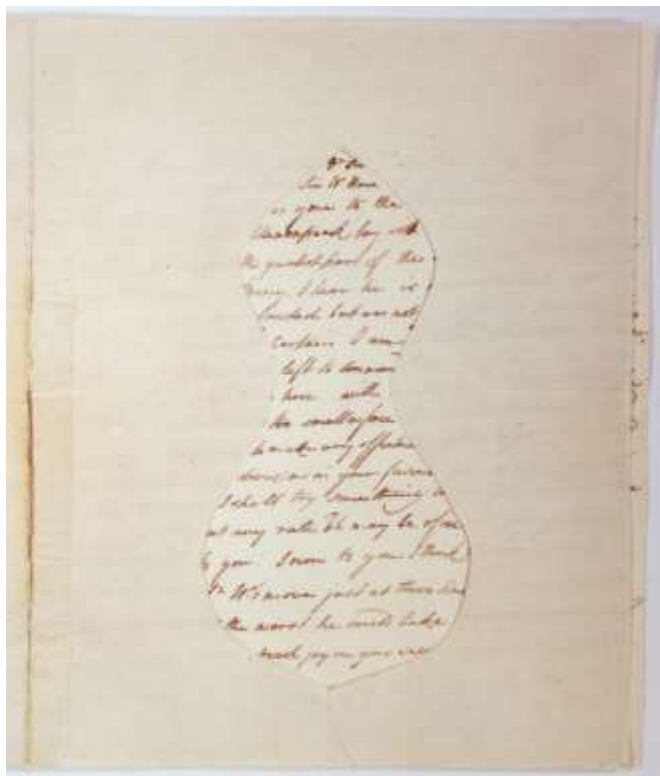 Sir W Howe
is gone to the
Chesapeak bay with
the greatest part of the
army I hear he is
landed but am not
certain I am
left to command
here with
too small a force
to make any effectual
diversion in your favour
I shall try something
at any rate It may be of use
to you I own to you I think
Sr W's move just at this time
the worst he could take
much joy on your